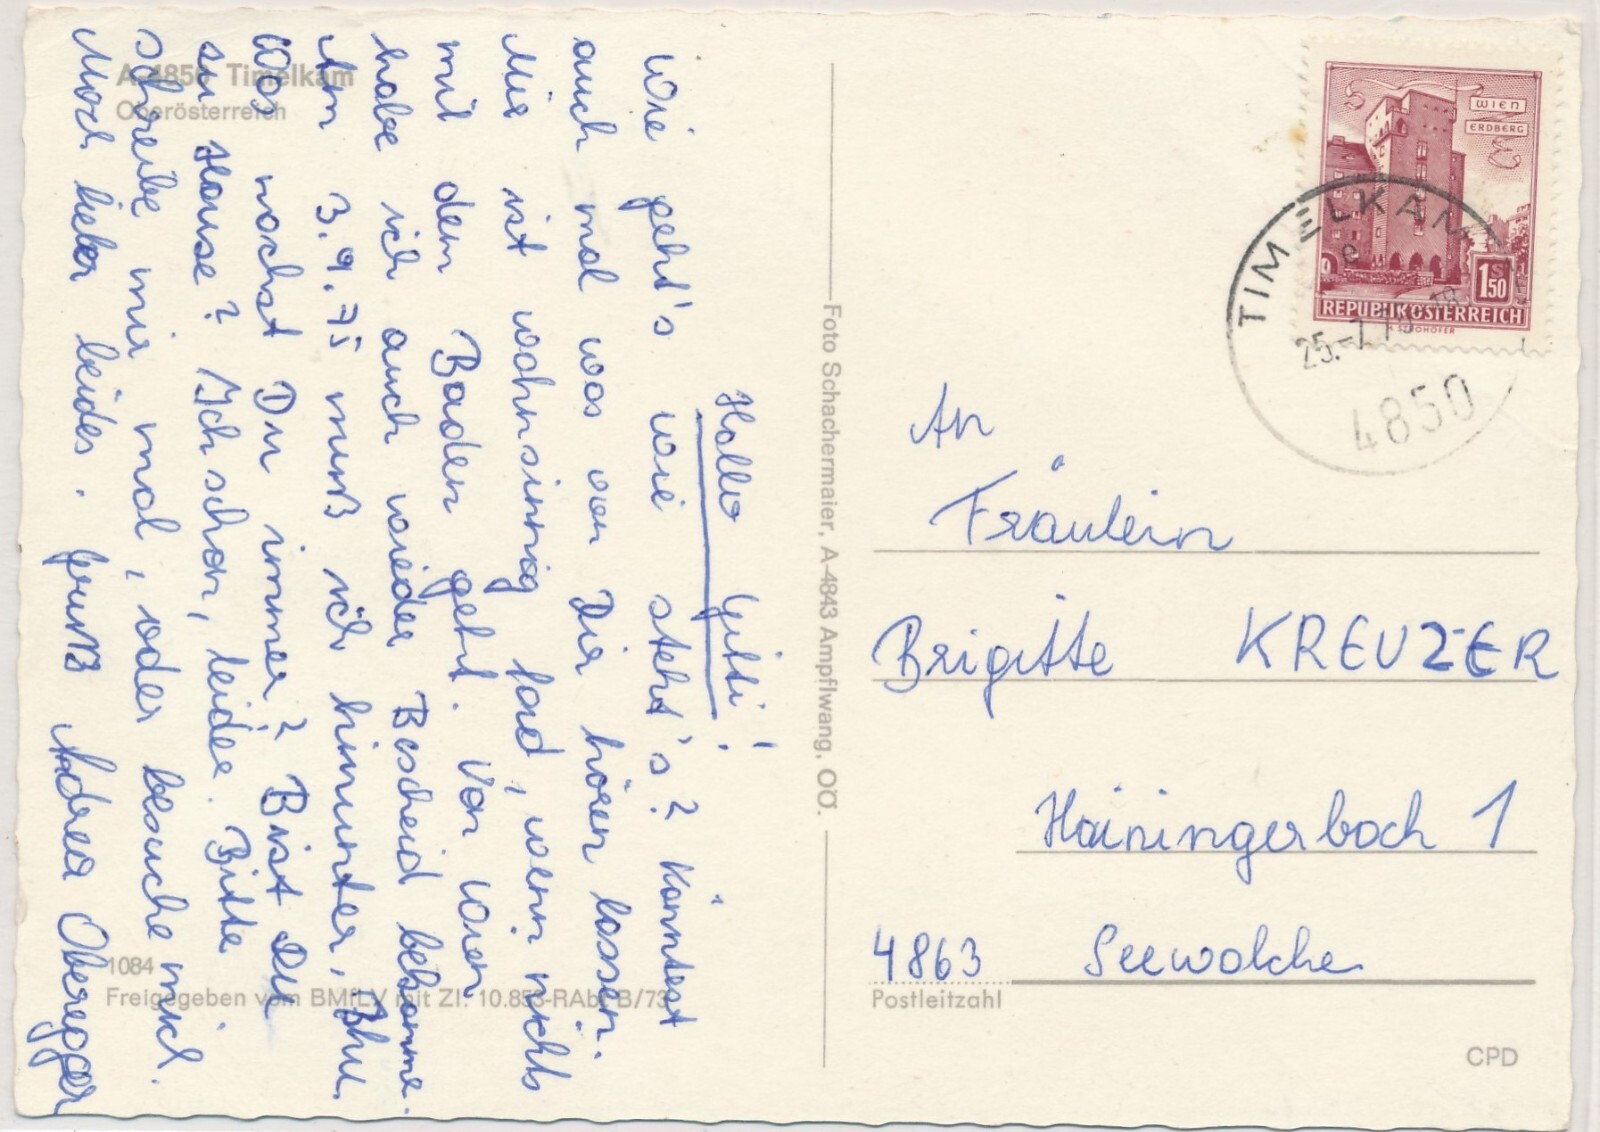 Hallo Gitti!
Wie geht's wie steht's? Könntest
auch mal was von Dir hören lassen.
Mir ist wahnsinnig fad, wenn nichts
mit dem Baden geht. Von
habe ich auch wieder Bescheid bekomme.
Am 3.9.75 muß ich hinunter,
Was machst Du immer? Bist Du
zu Hause? Ich schon, leider. Bitte
schreibe mir mal, oder besuche mich.
Noch lieber beides. Gruß Andrea Oberegger
A-4850 Timelkam
Oberösterreich
1084
Freigegeben vom BMfLV mit Zl: 10.853-RAbt B/73
Foto Schachermaier, A-4843 Ampflwang, OÖ.
WIEN
ERDBERG
1 S 50
REPUBLIK ÖSTERREICH
TIMELKAM
e
25.-7.75-18
4850
An
Fräulein
Brigitte KREUZER
Hainingerbach 1
4863 Seewalchen
Postleitzahl
CPD